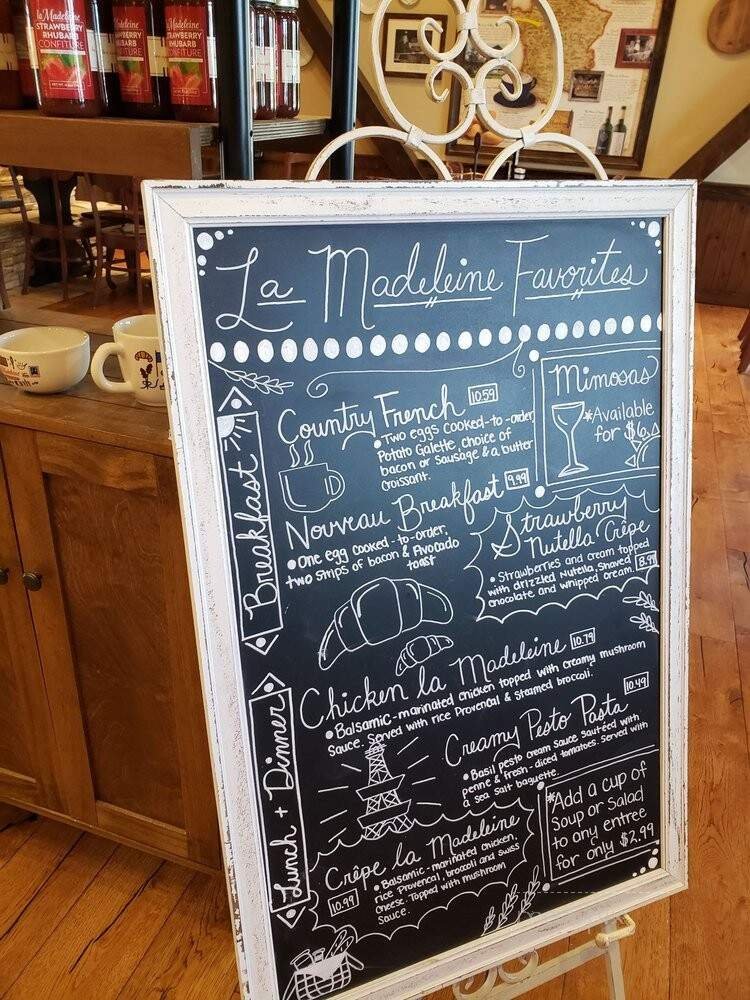 la Madeleine
STRAWBERRY
RHUBARB
CONFITURE
la Madeleine
STRAWBERRY
RHUBARB
CONFITURE
la Madeleine
STRAWBERRY
RHUBARB
CONFITURE
La Madeleine Favorites
Breakfast
Country French 10.59
• Two eggs cooked-to-order,
Potato Galette, choice of
bacon or sausage & a butter
croissant.
Mimosas
*Available
for $6.
Nouveau Breakfast 9.99
• One egg cooked-to-order,
two strips of bacon & Avocado
toast
Strawberry
Nutella Crêpe
• Strawberries and cream topped
with drizzled Nutella, Shaved
chocolate and whipped cream. 8.99
Lunch + Dinner
Chicken la Madeleine 10.79
• Balsamic-marinated chicken topped with creamy mushroom
sauce. Served with rice Provencal & steamed broccoli.
Creamy Pesto Pasta 10.49
• Basil pesto cream sauce sautéed with
penne & fresh-diced tomatoes. Served with
a sea salt baguette.
Crêpe la Madeleine
10.99
• Balsamic-marinated chicken,
rice Provencal, broccoli and swiss
cheese. Topped with mushroom
sauce.
*Add a cup of
Soup or Salad
to any entree
for only $2.99